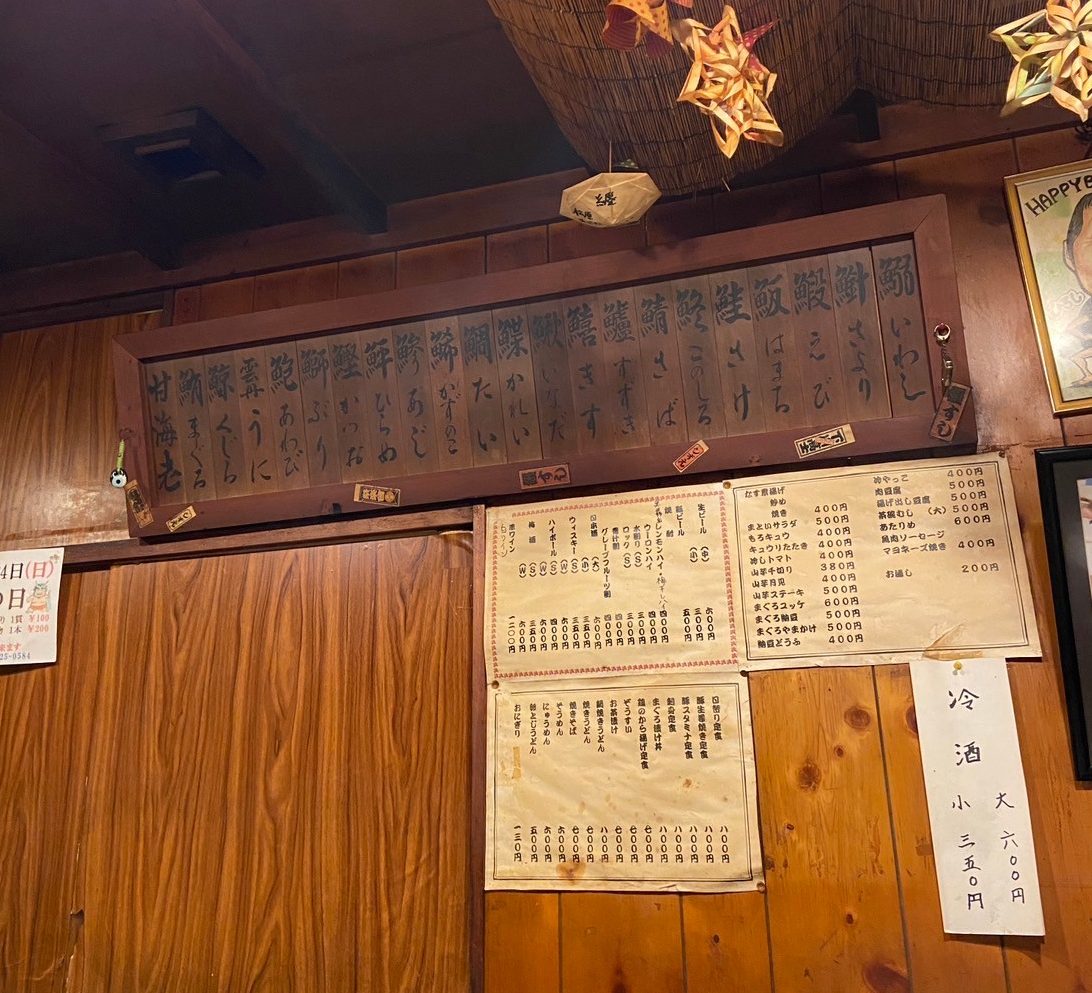 HAPPY
鰯 いわし
鱵 さより
鰕 えび
魬 はまち
鮭 さけ
鮗 このしろ
鯖 さば
鱸 すずき
鱚 きす
鰍 いなだ
鰈 かれい
鯛 たい
かずのこ
あじ
鮃 ひらめ
鰹 かつお
鰤 ぶり
鮑 あわび
うに
鯨 くじら
鮪 まぐろ
甘海老
4日(日)
¥100
1本 ¥200
25-0584
生ビール (中) 六００円
(小) 五００円
瓶ビール
焼酎
レモンハイ・梅干しハイ 四００円
ウーロンハイ 四００円
水割り(S)
ロック(S)
グレープフルーツ割
日本酒 (大) 六００円
(小) 三五０円
ウィスキー (S)
(W)
ハイボール (S)
(W)
梅酒 (S)
(W)
赤ワイン 一二００円
白ワイン
なす煮揚げ
炒め
焼き 400円
まといサラダ 500円
もろキュウ 400円
キュウリたたき 400円
冷しトマト 400円
山芋千切り 380円
山芋月見 400円
山芋ステーキ 500円
まぐろユッケ 600円
まぐろ納豆 500円
まぐろやまかけ 600円
納豆どうふ 400円
冷やっこ 400円
肉豆腐 500円
揚げ出し豆腐 500円
茶碗むし (大) 500円
あたりめ 600円
魚肉ソーセージ
マヨネーズ焼き 400円
お通し 200円
日替り定食 八００円
豚生姜焼き定食 八００円
豚スタミナ定食 八００円
刺身定食 八００円
まぐろ漬け丼 八００円
鶏のから揚げ定食 七００円
ぞうすい 七００円
お茶漬け 七００円
鍋焼きうどん 八００円
焼きうどん 七００円
焼きそば 七００円
そうめん 六００円
にゅうめん 六００円
卵とじうどん 五００円
おにぎり 一三０円
冷酒
大 六００円
小 三五０円